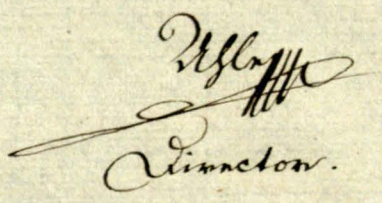 Uhle
Director.